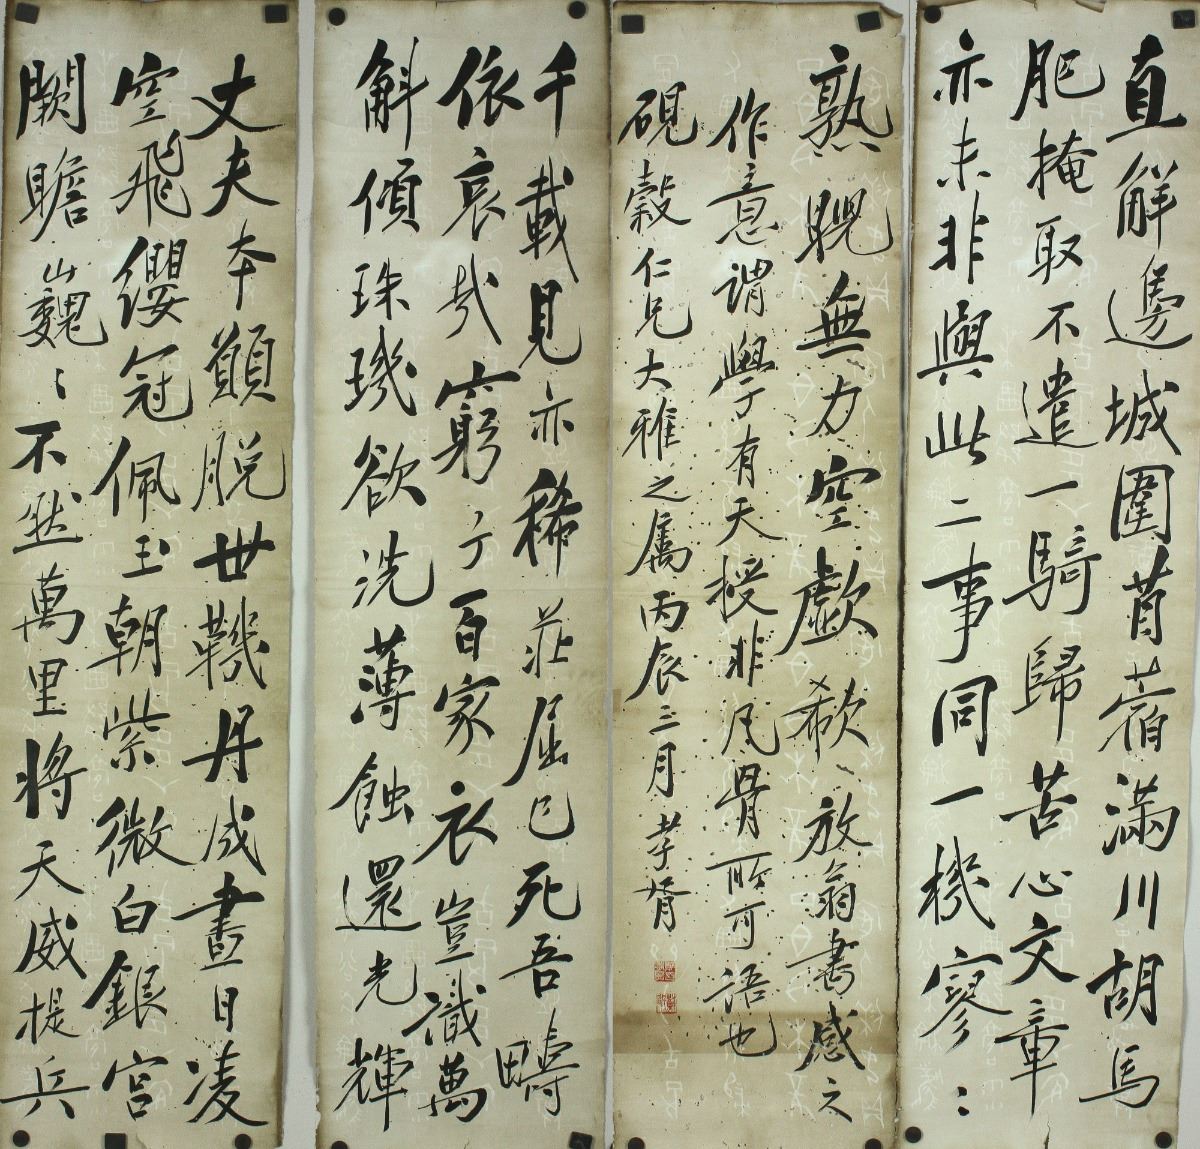 丈夫本願脫世鞿丹成晝日凌
空飛纓冠佩玉朝紫微白銀宮
闕瞻巍〻不然萬里將天威提兵
直解邊城圍苜蓿滿川胡馬
肥掩取不遣一騎歸苦心文章
亦未非與此二事同一機寥〻
千載見亦稀莊屈已死吾疇
依哀哉窮子百家衣豈識萬
斛傾珠璣欲洗薄蝕還光輝
熟睨無力空歔欷放翁書感之
作意謂學有天授非凡骨所可語也
硯穀仁兄大雅之屬丙辰三月孝胥